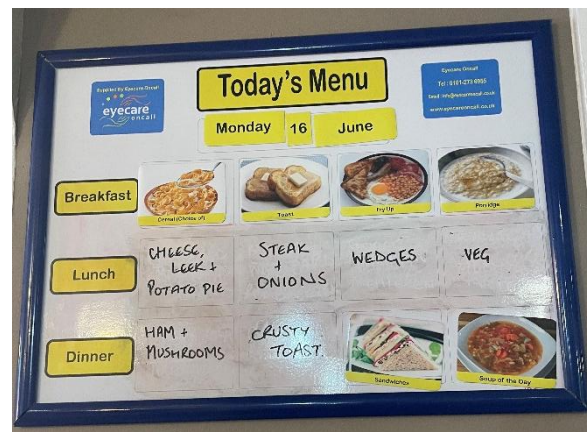 Supplied By Eyecare Oncall
eyecare
oncall
Today's Menu
Eyecare Oncall
www.eyecareoncall.co.uk
Monday 16 June
Breakfast
Cereal (Choice of)
Toast
Fry Up
Porridge
Lunch
CHEESE,
LEEK +
POTATO PIE
STEAK
+
ONIONS
WEDGES
VEG
Dinner
HAM +
MUSHROOMS
CRUSTY
TOAST
Sandwiches
Soup of the Day